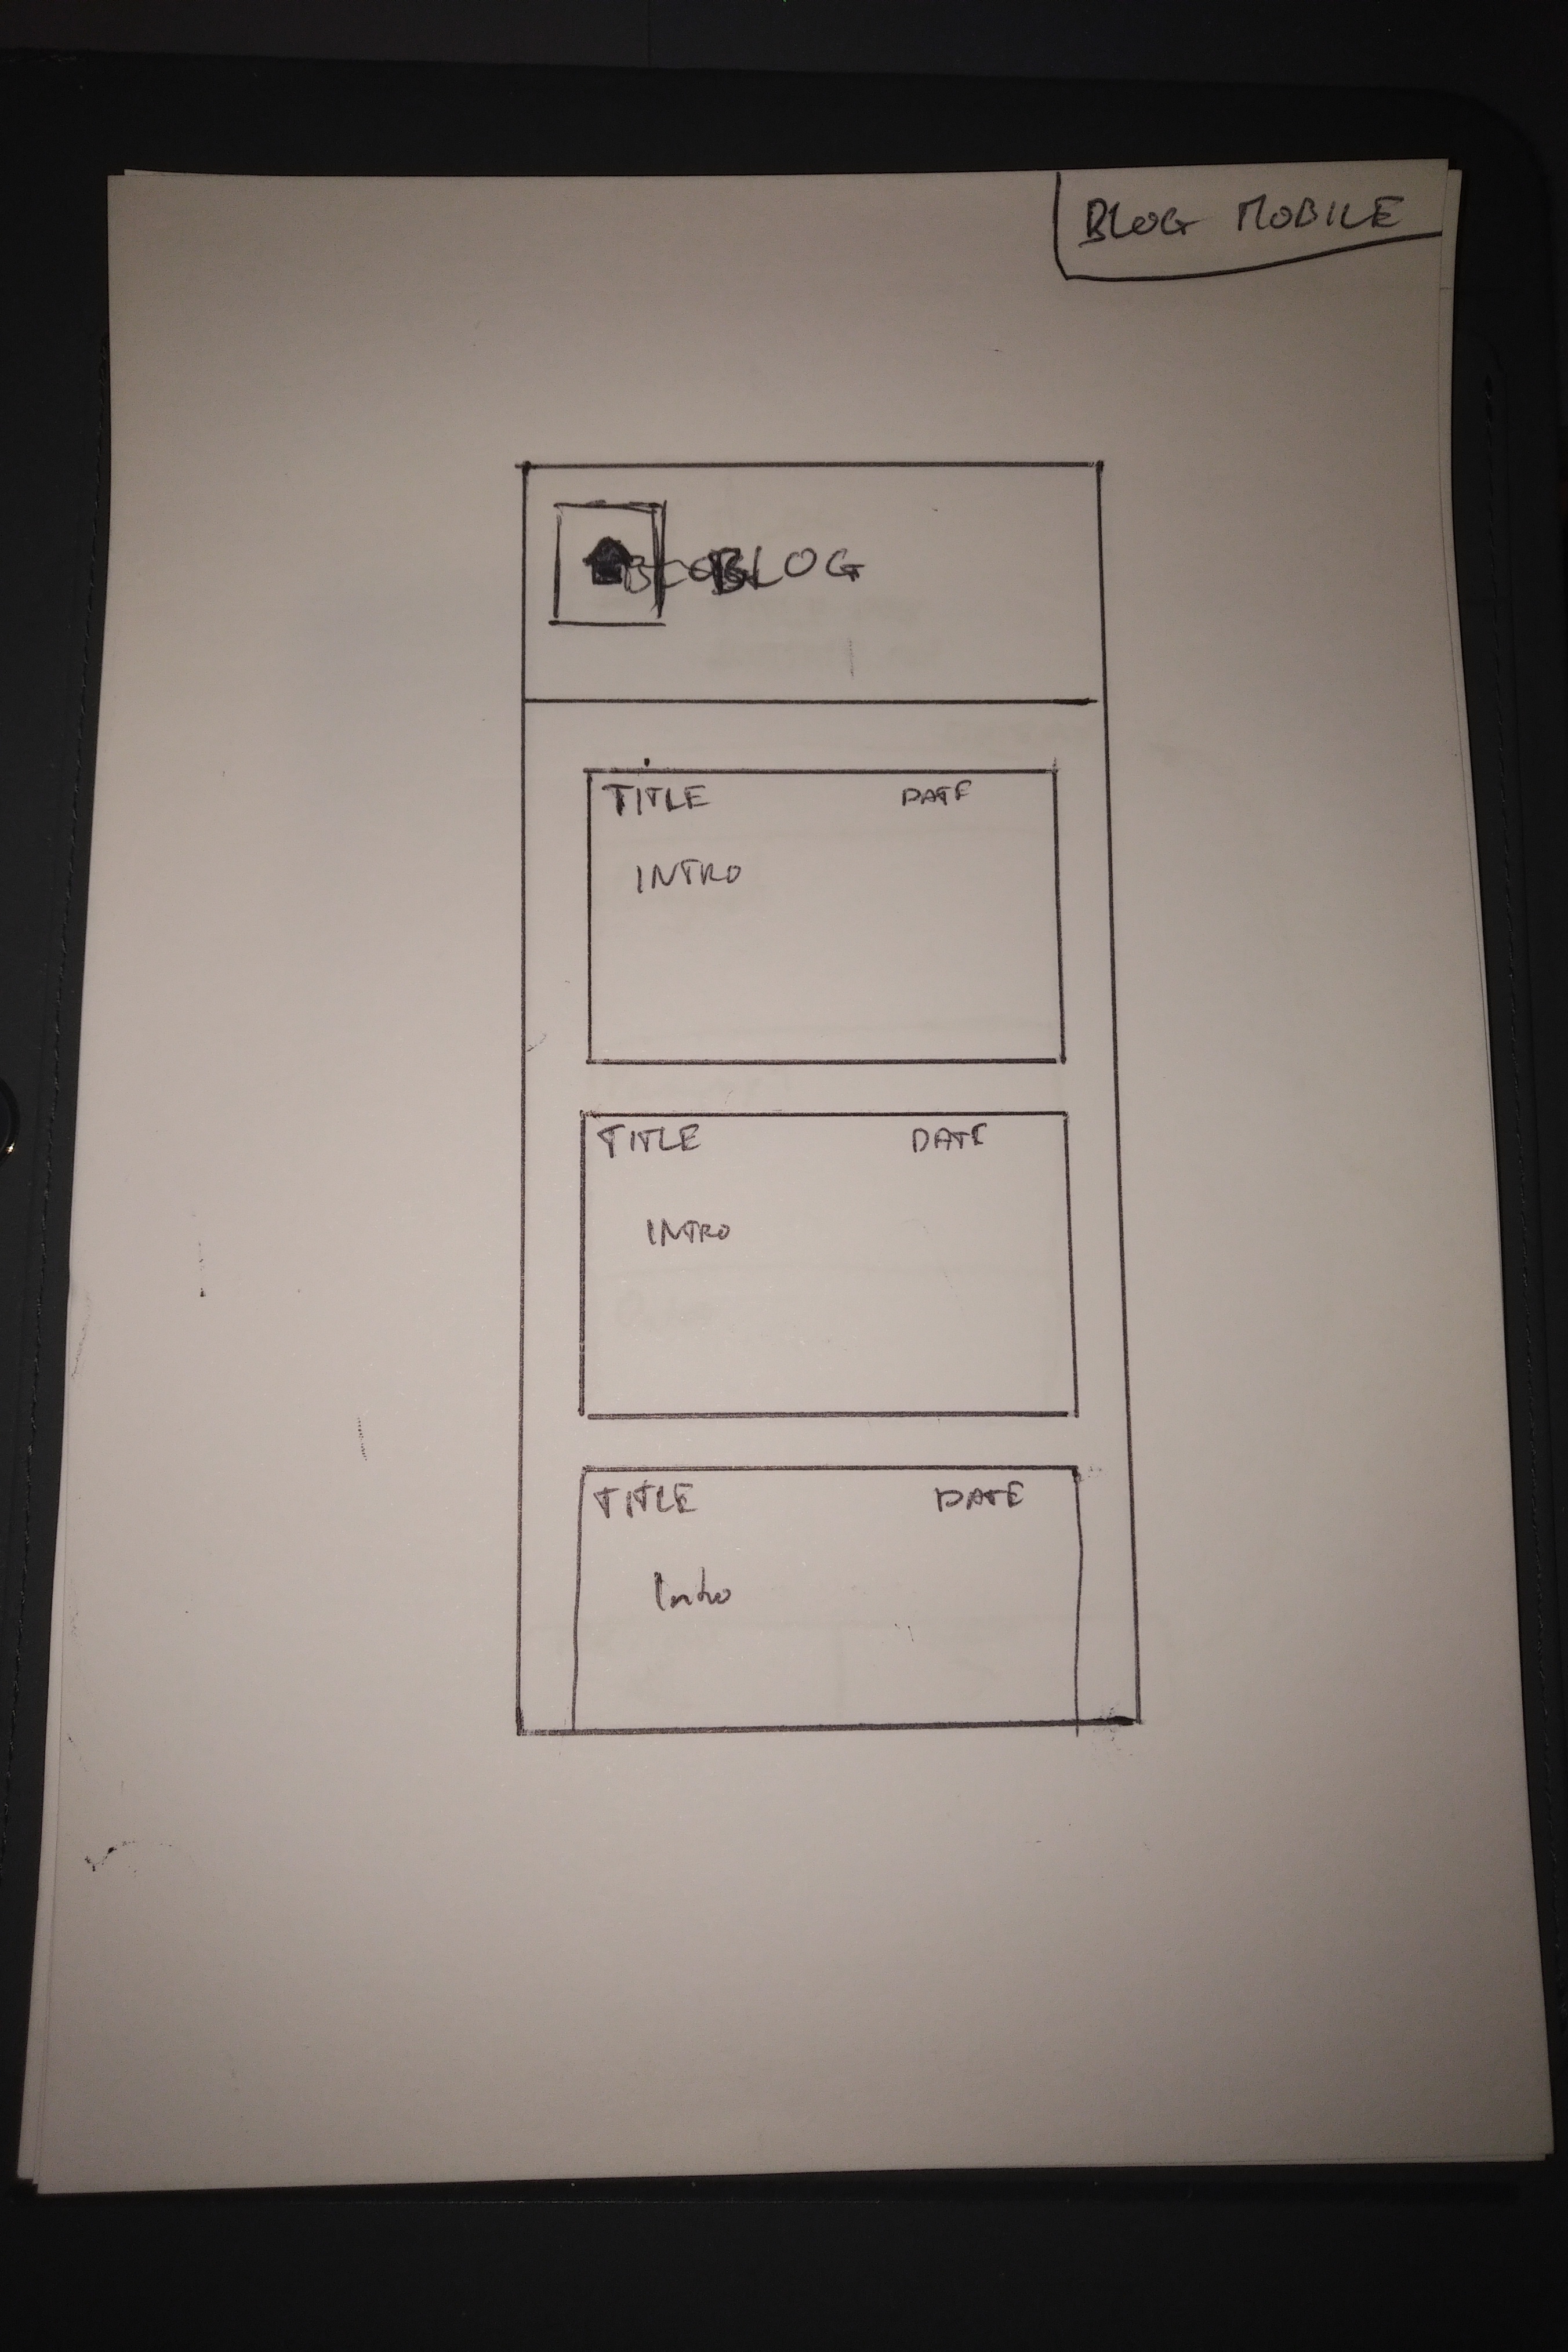 BLOG MOBILE
BLOG
TITLE DATE
INTRO
TITLE DATE
INTRO
TITLE DATE
Intro